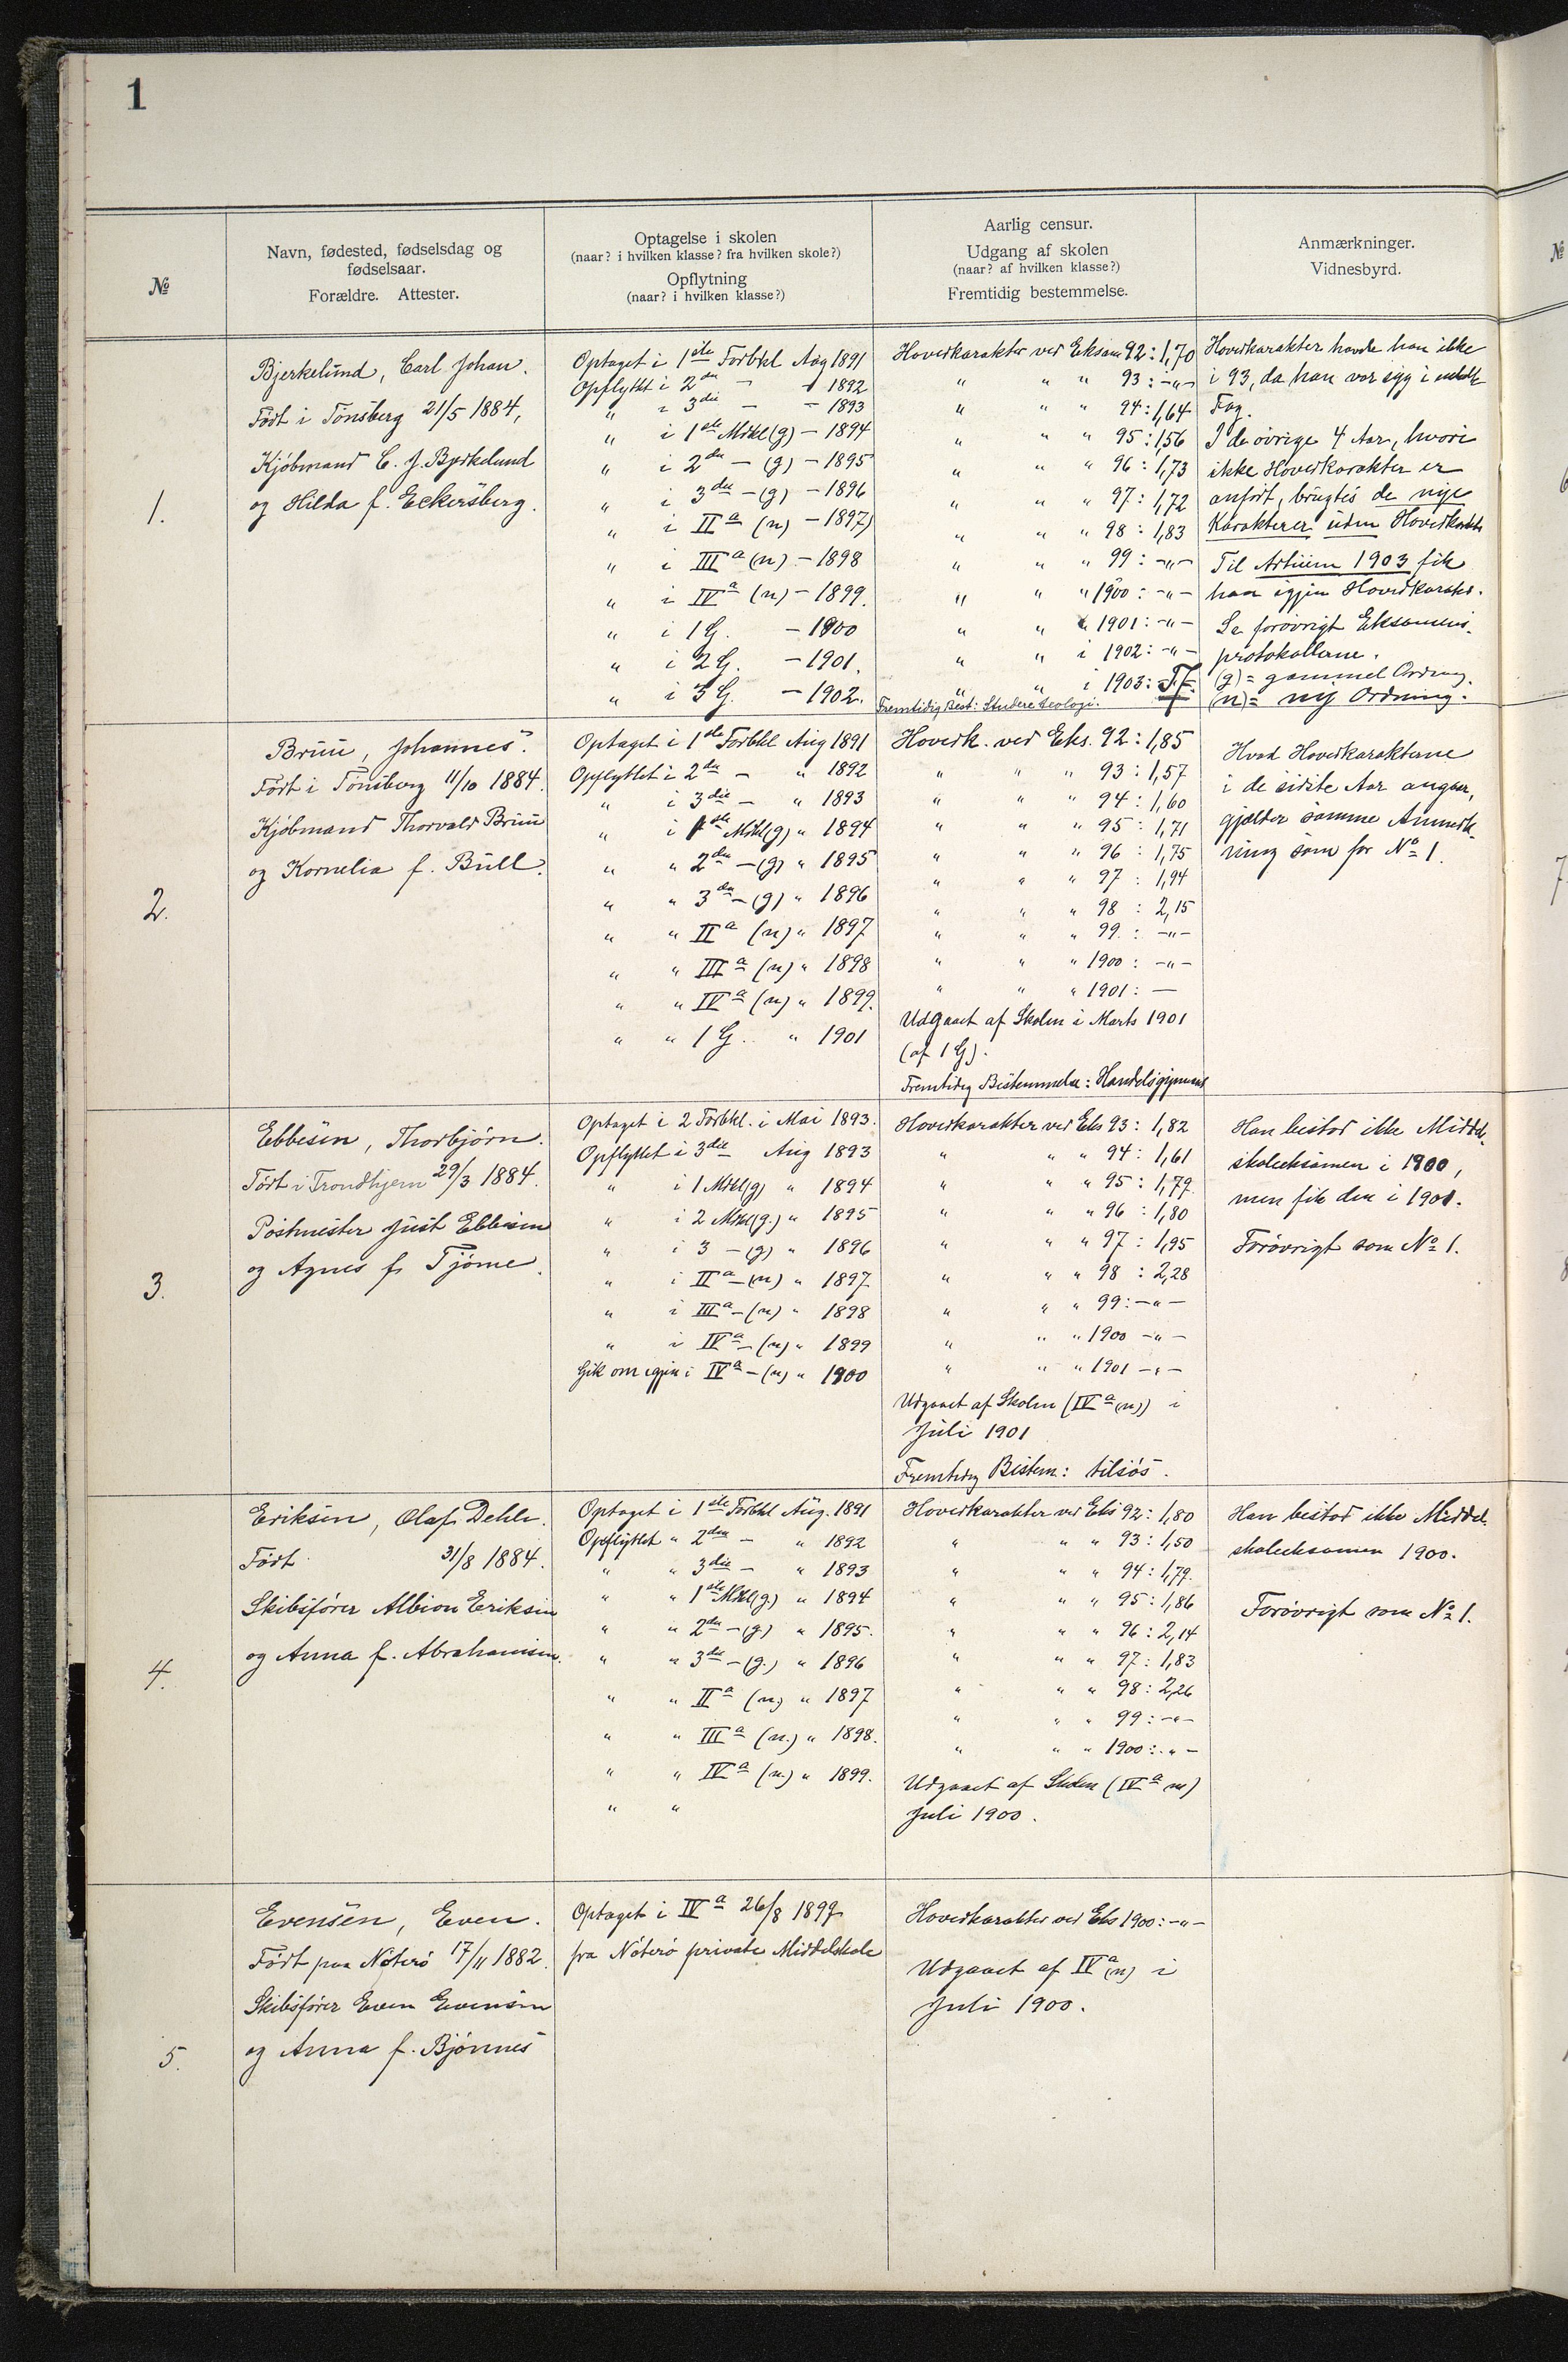 1
№
Navn, fødested, fødselsdag og
fødselsaar.
Forældre. Attester.
Optagelse i skolen
(naar? i hvilken klasse? fra hvilken skole?)
Opflytning
(naar? i hvilken klasse?)
Aarlig censur.
Udgang af skolen
(naar? af hvilken klasse?)
Fremtidig bestemmelse.
Anmærkninger.
Vidnesbyrd.
1.
Bjerkelund, Carl Johan.
Født i Tönsberg 21/5 1884,
Kjöbmand C. J. Bjerkelund
og Hilda f. Eckersberg.
Optaget i 1ste Forbkl Aug 1891
Opflyttet i 2den — " 1892
" i 3die — — 1893
" i 1ste Mdkl (g) — 1894
" i 2den — (g) — 1895
" i 3die — (g) — 1896
" i IIa (n) — 1897
" i IIIa (n) — 1898
" i IVa (n) — 1899.
" i 1 G. — 1900
" i 2 G. — 1901.
" i 3 G. — 1902.
Hovedkarakter ved Eksam 92: 1,70
" " " 93: -"-
" " " 94: 1,64
" " " 95: 1,56
" " " 96: 1,73
" " " 97: 1,72
" " " 98: 1,83
" " " 99: -"-
" " " 1900: -"-
" " " 1901: -"-
" " i 1902: -"-
" " i 1903:
Fremtidig Best: Studere teologi.
Hovedkarakter havde han ikke
i 93, da han var syg i enkelte
Fag.
I de övrige 4 Aar, hvori
ikke Hovedkarakter er
anfört, brugtes de nye
Karakterer uden Hovedkarakter
Til Artium 1903 fik
han igjen Hovedkarakt.
Se forövrigt Eksamens-
protokollerne.
(g) = gammel Ordning.
(n) = ny Ordning.
2.
Bruu, Johannes.
Født i Tönsberg 11/10 1884.
Kjöbmand Thorvald Bruu
og Kornelia f. Bull.
Optaget i 1ste Forbkl Aug 1891
Opflyttet i 2den — " 1892
" i 3die — " 1893
" i 1ste Mdkl (g) " 1894
" " 2den — (g) " 1895
" " 3die — (g) " 1896
" " IIa (n) " 1897
" " IIIa (n) " 1898
" " IVa (n) " 1899.
" " 1 G. " 1901
Hovedk. ved Eks. 92: 1,85
" " " 93: 1,57
" " " 94: 1,60
" " " 95: 1,71
" " " 96: 1,75
" " " 97: 1,94
" " " 98: 2,15
" " " 99: -"-
" " " 1900: -"-
" " " 1901: —
Udgaaet af Skolen i Marts 1901
(af 1 G).
Fremtidig Bestemmelse: Handelsgymnas
Hvad Hovedkaraktererne
i de sidste Aar angaar,
gjælder samme Anmærk-
ning som for No 1.
3.
Ebbesen, Thorbjörn.
Født i Trondhjem 29/3 1884.
Postmester Just Ebbesen
og Agnes f. Tjöme.
Optaget i 2 Forbkl. i Mai 1893.
Opflyttet i 3die Aug 1893
" i 1 Mdkl (g) " 1894
" i 2 Mdkl (g.) " 1895
" i 3 — (g) " 1896
" i IIa — (n) " 1897
" i IIIa — (n) " 1898
" i IVa — (n) " 1899
Gik om igjen i IVa — (n) " 1900
Hovedkarakter ved Eks 93: 1,82
" " " 94: 1,61
" " " 95: 1,79.
" " " 96: 1,80
" " " 97: 1,95
" " " 98: 2,28
" " " 99: -"-
" " " 1900 -"-
" " " 1901 -"-
Udgaaet af Skolen (IVa (n)) i
Juli 1901
Fremtidig Bestem: tilsös.
Han bestod ikke Middel-
skoleeksamen i 1900,
men fik den i 1901.
Forövrigt som No 1.
4.
Eriksen, Olaf Dehli.
Født 31/8 1884.
Skibsförer Albion Eriksen
og Anna f. Abrahamsen.
Optaget i 1ste Forbkl Aug. 1891
Opflyttet " 2den — " 1892
" " 3die — " 1893
" " 1ste Mdkl (g.) " 1894
" " 2den — (g) " 1895.
" " 3die — (g.) " 1896
" " IIa (n) " 1897
" " IIIa (n.) " 1898.
" " IVa (n.) " 1899.
" "
Hovedkarakter ved Eks 92: 1,80
" " " 93: 1,50
" " " 94: 1,79.
" " " 95: 1,86
" " " 96: 2,14
" " " 97: 1,83
" " " 98: 2,26
" " " 99: -"-
" " " 1900: -"-
Udgaaet af Skolen (IVa n)
Juli 1900.
Han bestod ikke Middel-
skoleeksamen 1900.
Forövrigt som No 1.
5.
Evensen, Even.
Født paa Nöterö 17/11 1882.
Skibsförer Even Evensen
og Anna f. Bjönnes
Optaget i IVa 26/8 1899
fra Nöterö private Middelskole
Hovedkarakter ved Eks 1900: -"-
Udgaaet af IVa (n) i
Juli 1900.